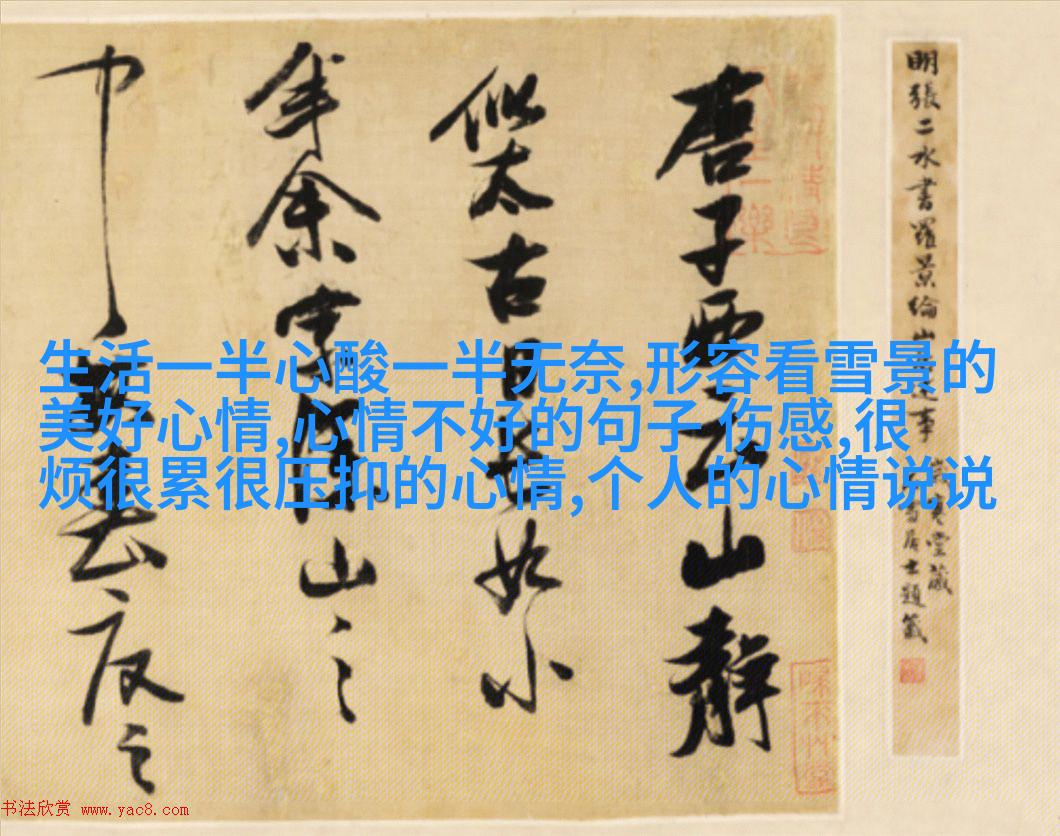 生活一半心酸一半无奈,形容看雪景的
美好心情,心情不好的句子 伤感,很
烦很累很压抑的心情,个人的心情说说
明張二水書羅景綸山
事
堂藏
居士題籤
唐子西云山靜
似太古日長如小
年余家深山之
中
夏之
书法欣赏 www.yac8.com